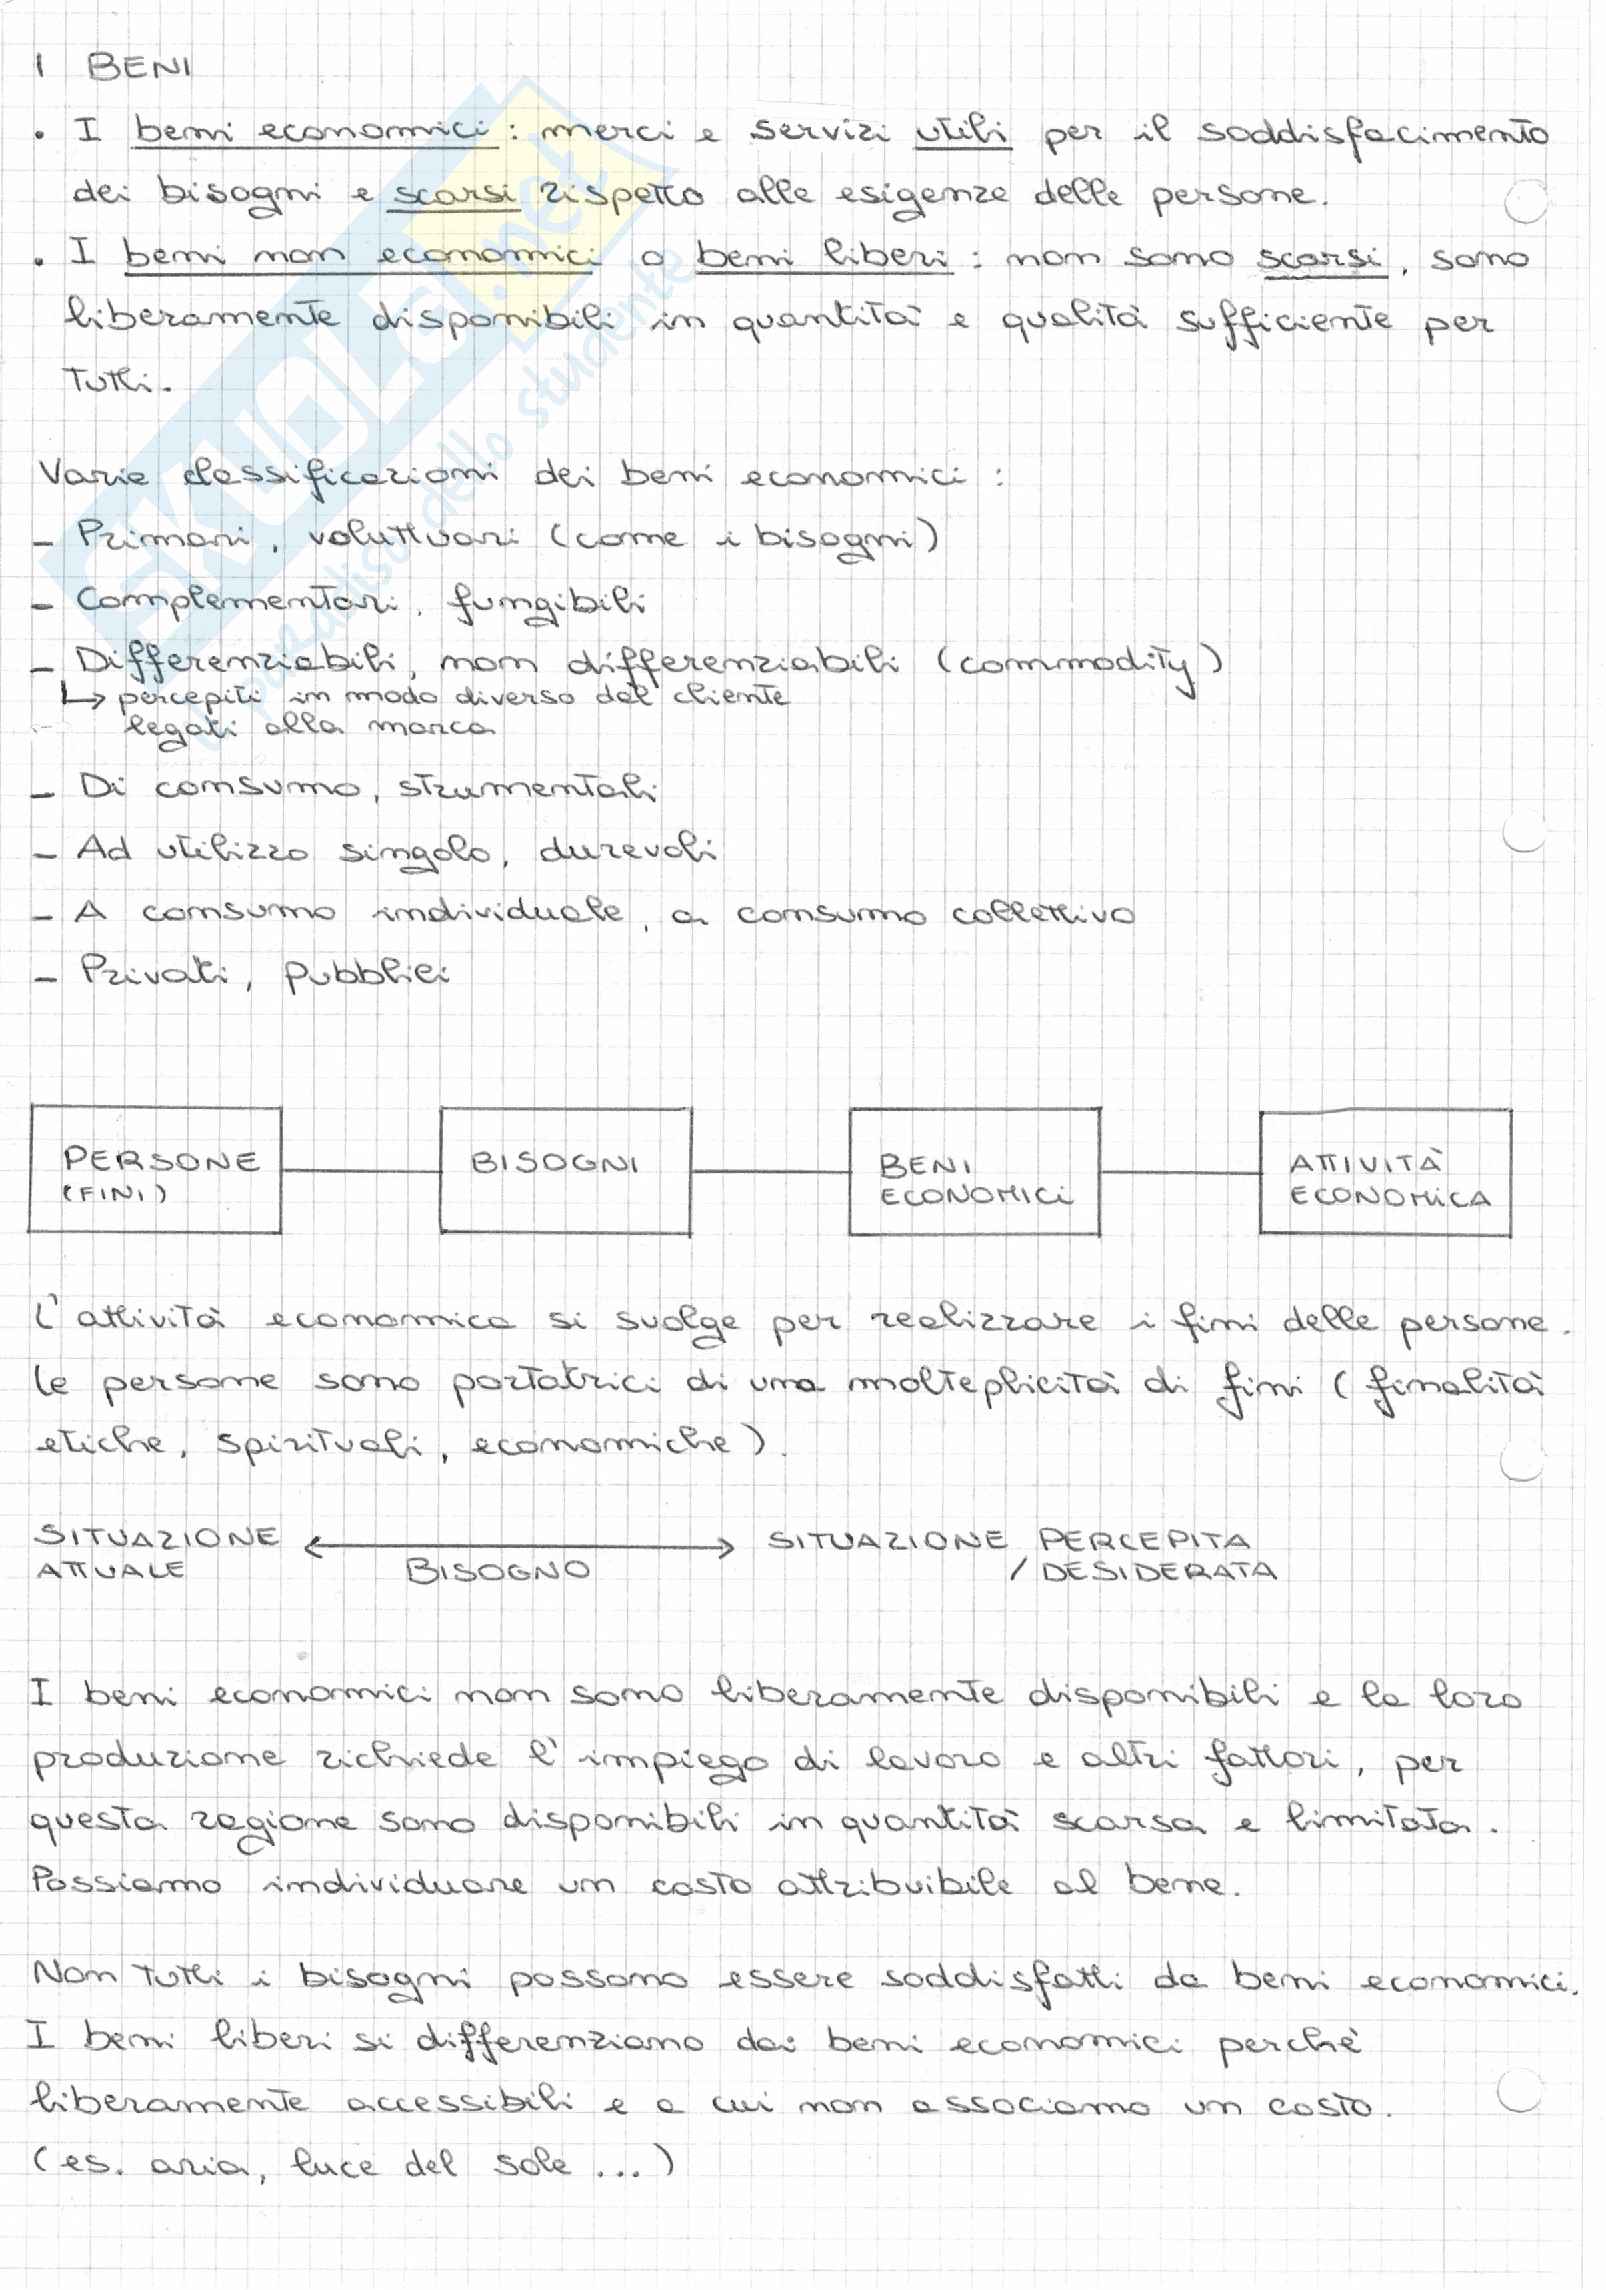 I BENI
• I beni economici : merci e servizi utili per il soddisfacimento
dei bisogni e scarsi rispetto alle esigenze delle persone.
• I beni non economici o beni liberi : non sono scarsi, sono
liberamente disponibili in quantità e qualità sufficiente per
tutti.
Varie classificazioni dei beni economici :
- Primari, voluttuari (come i bisogni)
- Complementari, fungibili
- Differenziabili, non differenziabili (commodity)
↳ percepiti in modo diverso dal cliente
legati alla marca
- Di consumo, strumentali
- Ad utilizzo singolo, durevoli
- A consumo individuale, a consumo collettivo
- Privati, pubblici
PERSONE
(FINI)
BISOGNI
BENI
ECONOMICI
ATTIVITÀ
ECONOMICA
L'attività economica si svolge per realizzare i fini delle persone.
Le persone sono portatrici di una molteplicità di fini (finalità
etiche, spirituali, economiche).
SITUAZIONE
ATTUALE
BISOGNO
SITUAZIONE PERCEPITA
/ DESIDERATA
I beni economici non sono liberamente disponibili e la loro
produzione richiede l'impiego di lavoro e altri fattori, per
questa ragione sono disponibili in quantità scarsa e limitata.
Possiamo individuare un costo attribuibile al bene.
Non tutti i bisogni possono essere soddisfatti da beni economici.
I beni liberi si differenziano dai beni economici perché
liberamente accessibili e a cui non associamo un costo.
(es. aria, luce del sole ...)
SKUOLA.net
paradiso dello studente